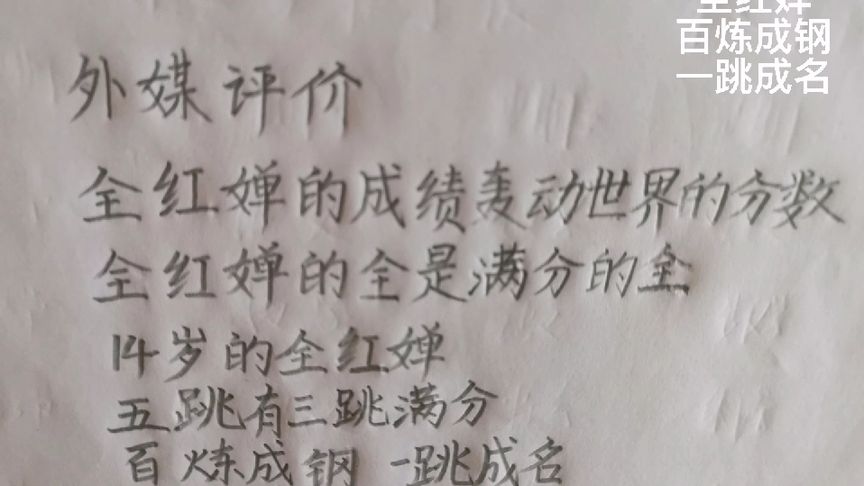 全红婵
百炼成钢
一跳成名
外媒评价
全红婵的成绩轰动世界的分数
全红婵的全是满分的全
14岁的全红婵
五跳有三跳满分
百炼成钢 一跳成名